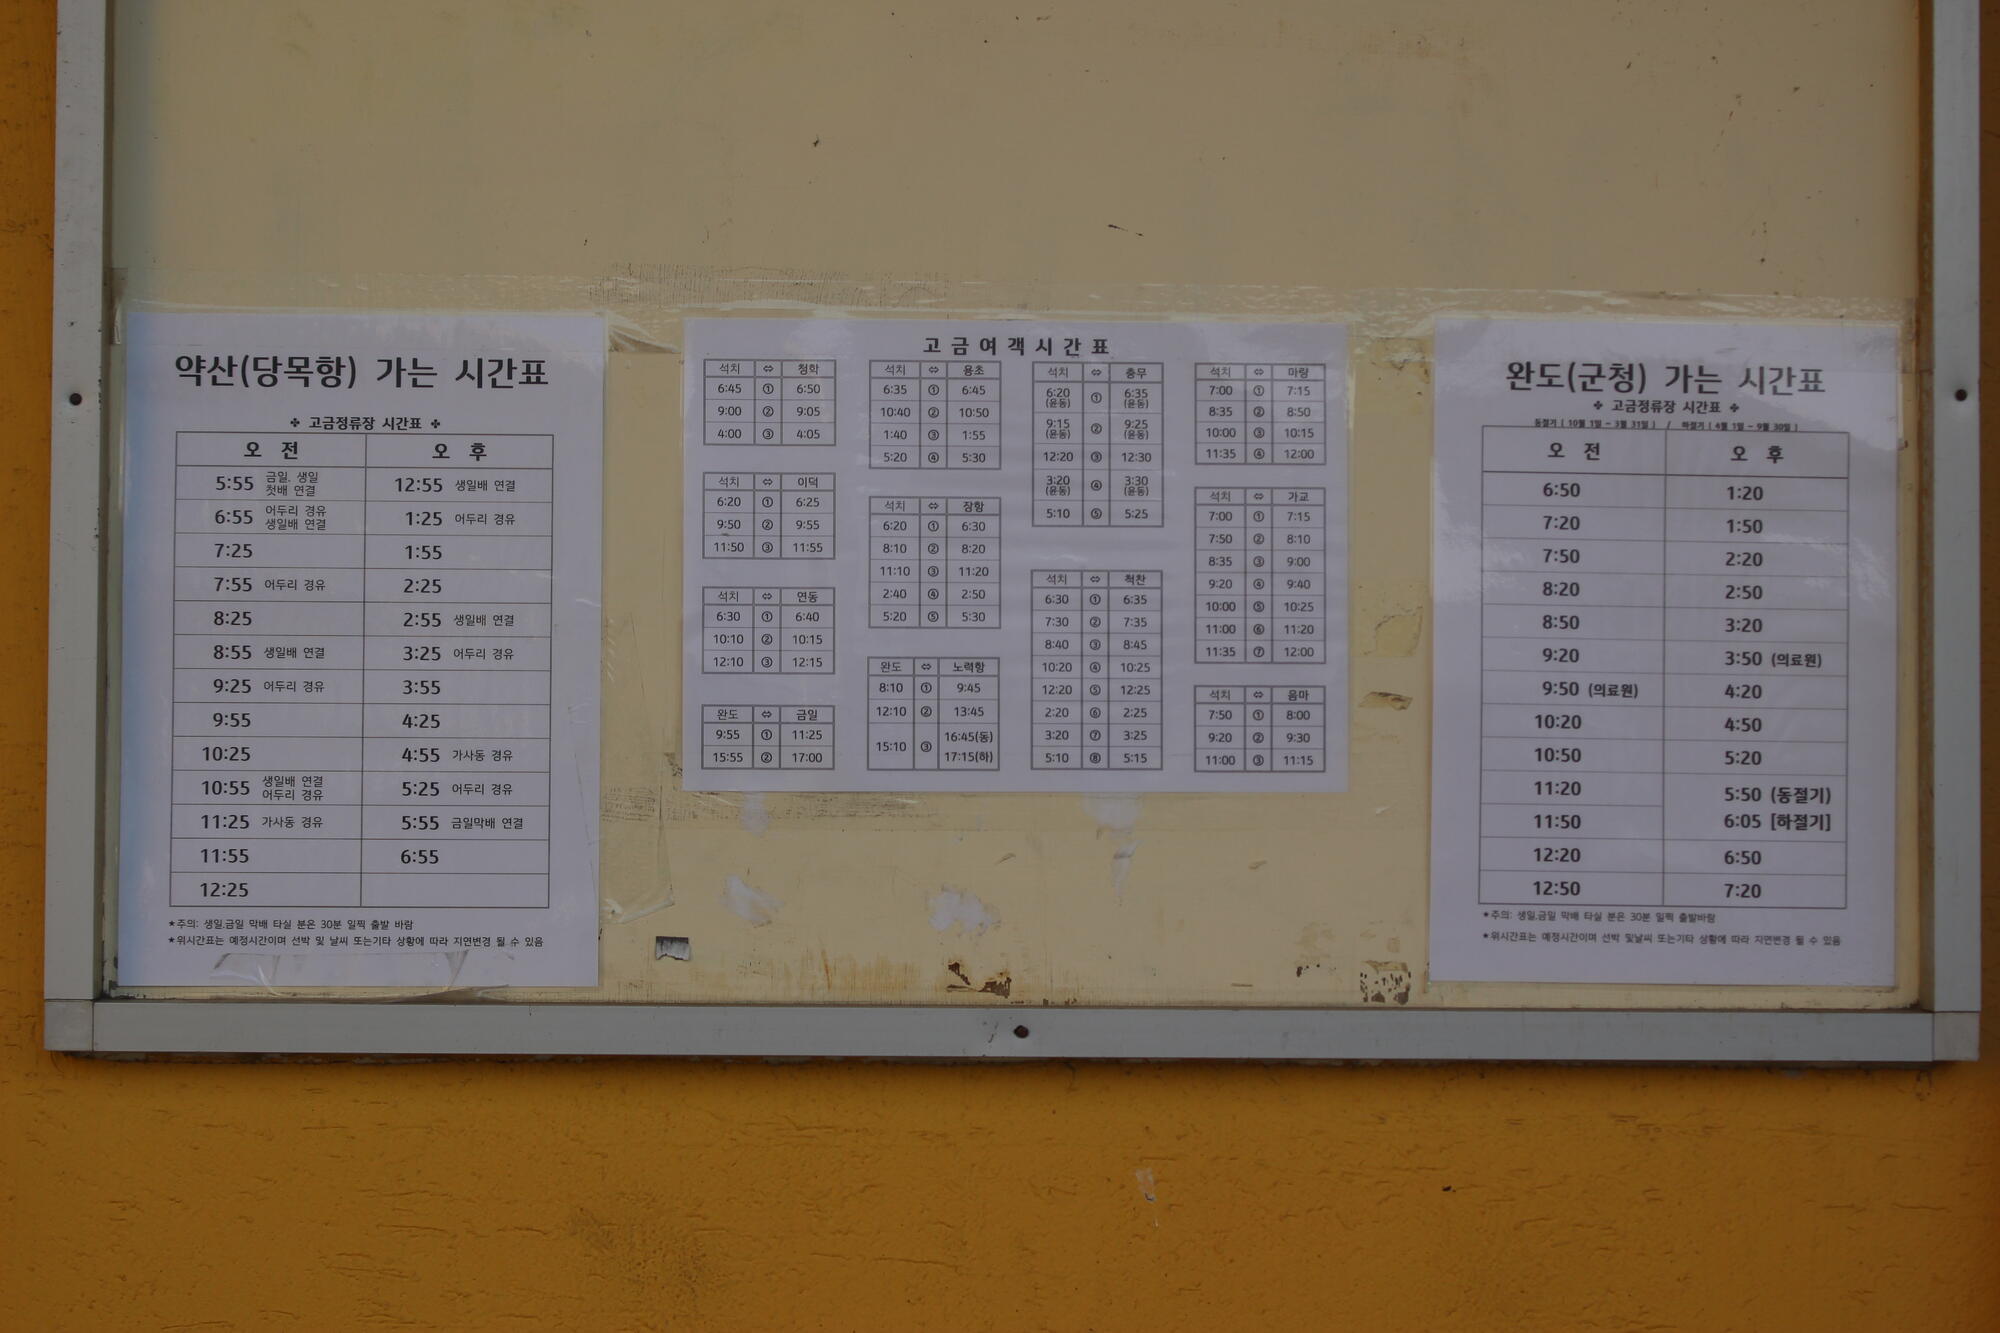 약산(당목항) 가는 시간표
✤ 고금정류장 시간표 ✤
오 전 오 후
5:55 금일. 생일 첫배 연결 12:55 생일배 연결
6:55 어두리 경유 생일배 연결 1:25 어두리 경유
7:25 1:55
7:55 어두리 경유 2:25
8:25 2:55 생일배 연결
8:55 생일배 연결 3:25 어두리 경유
9:25 어두리 경유 3:55
9:55 4:25
10:25 4:55 가사동 경유
10:55 생일배 연결 어두리 경유 5:25 어두리 경유
11:25 가사동 경유 5:55 금일막배 연결
11:55 6:55
12:25
★주의: 생일.금일 막배 타실 분은 30분 일찍 출발 바람
★위시간표는 예정시간이며 선박 및 날씨 또는기타 상황에 따라 지연변경 될 수 있음
고금여객시간표
석치 ⇔ 청학
6:45 ① 6:50
9:00 ② 9:05
4:00 ③ 4:05
석치 ⇔ 이덕
6:20 ① 6:25
9:50 ② 9:55
11:50 ③ 11:55
석치 ⇔ 연동
6:30 ① 6:40
10:10 ② 10:15
12:10 ③ 12:15
완도 ⇔ 금일
9:55 ① 11:25
15:55 ② 17:00
석치 ⇔ 용초
6:35 ① 6:45
10:40 ② 10:50
1:40 ③ 1:55
5:20 ④ 5:30
석치 ⇔ 장항
6:20 ① 6:30
8:10 ② 8:20
11:10 ③ 11:20
2:40 ④ 2:50
5:20 ⑤ 5:30
완도 ⇔ 노력항
8:10 ① 9:45
12:10 ② 13:45
15:10 ③ 16:45(동)
17:15(하)
석치 ⇔ 충무
6:20 (윤동) ① 6:35 (윤동)
9:15 (윤동) ② 9:25 (윤동)
12:20 ③ 12:30
3:20 (윤동) ④ 3:30 (윤동)
5:10 ⑤ 5:25
석치 ⇔ 척찬
6:30 ① 6:35
7:30 ② 7:35
8:40 ③ 8:45
10:20 ④ 10:25
12:20 ⑤ 12:25
2:20 ⑥ 2:25
3:20 ⑦ 3:25
5:10 ⑧ 5:15
석치 ⇔ 마량
7:00 ① 7:15
8:35 ② 8:50
10:00 ③ 10:15
11:35 ④ 12:00
석치 ⇔ 가교
7:00 ① 7:15
7:50 ② 8:10
8:35 ③ 9:00
9:20 ④ 9:40
10:00 ⑤ 10:25
11:00 ⑥ 11:20
11:35 ⑦ 12:00
석치 ⇔ 음마
7:50 ① 8:00
9:20 ② 9:30
11:00 ③ 11:15
완도(군청) 가는 시간표
✤ 고금정류장 시간표 ✤
동절기 ( 10월 1일 ~ 3월 31일 ) / 하절기 ( 4월 1일 ~ 9월 30일 )
오 전 오 후
6:50 1:20
7:20 1:50
7:50 2:20
8:20 2:50
8:50 3:20
9:20 3:50 (의료원)
9:50 (의료원) 4:20
10:20 4:50
10:50 5:20
11:20 5:50 (동절기)
11:50 6:05 [하절기]
12:20 6:50
12:50 7:20
★주의: 생일.금일 막배 타실 분은 30분 일찍 출발바람
★위시간표는 예정시간이며 선박 및날씨 또는기타 상황에 따라 지연변경 될 수 있음